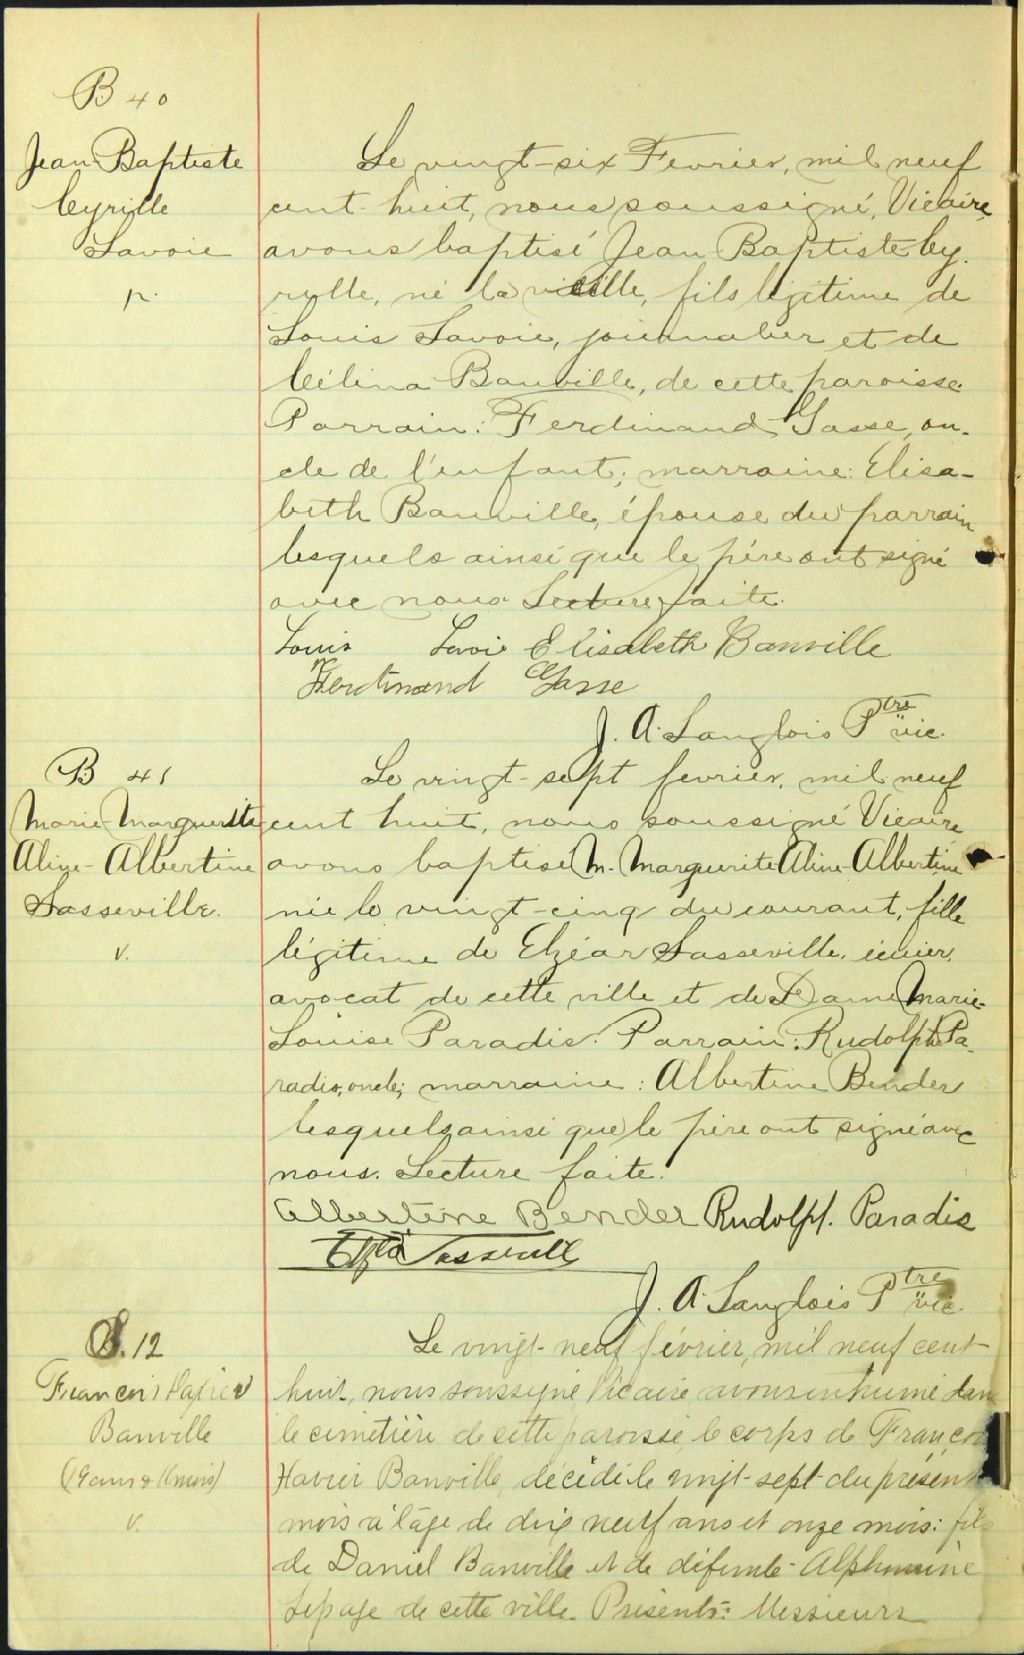 B 40
Jean Baptiste
Cyrille
Savoie
p.
Le vingt-six Fevrier, mil neuf
cent huit, nous soussigné, Vicaire
avons baptisé Jean Baptiste Cy.
rille, né la vieille, fils légitime de
Louis Savoie, journalier et de
Célina Banville, de cette paroisse.
Parrain: Ferdinand Gasse, on-
cle de l'enfant; marraine: Elisa-
beth Banville, épouse du parrain
lesquels ainsi que le père ont signé
avec nous Lecture faite.
Louis Savoie Elisabeth Banville
Ferdinand Gasse
J. A. Langlois Ptre vic.
B 41
Marie-Marguerite
Aline-Albertine
Sasseville.
v.
Le vingt-sept fevrier, mil neuf
cent huit, nous soussigné Vicaire
avons baptisé M. Marguerite Aline-Albertine
née le vingt-cinq du courant, fille
légitime de Elzéar Sasseville, écuier,
avocat de cette ville et de Dame Marie-
Louise Paradis. Parrain: Rudolph Pa-
radis, oncle; marraine: Albertine Bender
lesquels ainsi que le père ont signé avec
nous. Lecture faite.
Albertine Bender Rudolph. Paradis
Sasseville
J. A. Langlois Ptre vic.
S. 12
Francois Xavier
Banville
(19 ans & 11 mois)
v.
Le vingt-neuf février, mil neuf cent
huit, nous soussigné, Vicaire avons inhumé dans
le cimetière de cette paroisse, le corps de François
Xavier Banville, décédé le vingt-sept du présent
mois à l'âge de dix neuf ans et onze mois: fils
de Daniel Banville et de défunte Alphonsine
Lepage de cette ville. Présents: Messieurs